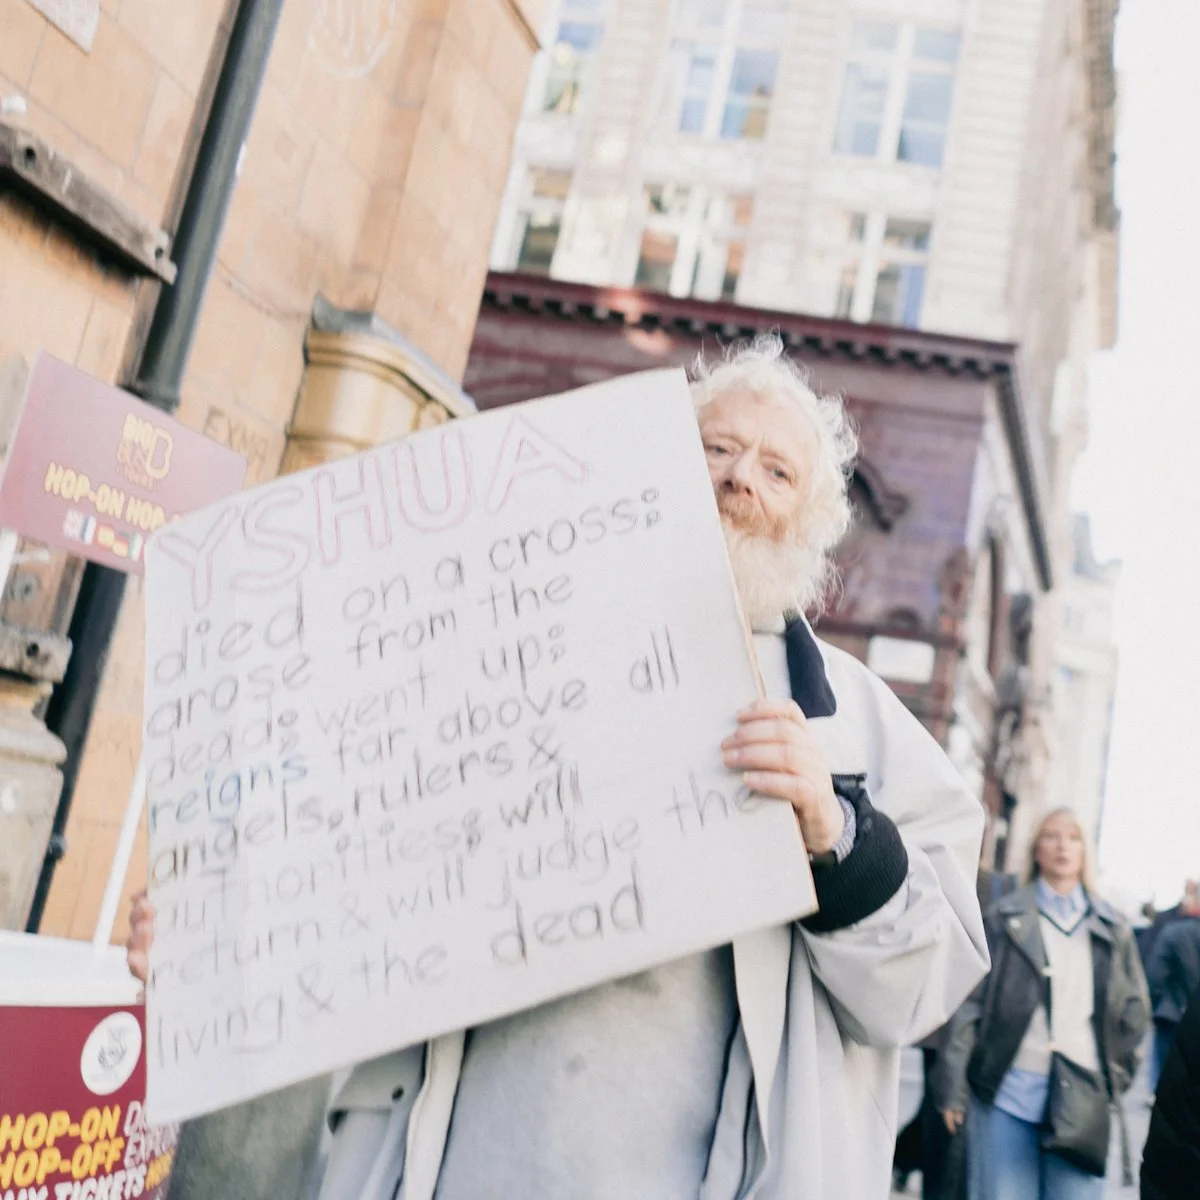 YSHUA
died on a cross:
arose from the
dead: went up:
reigns far above all
angels, rulers &
authorities: will
return & will judge the
living & the dead
BIG
BUS
HOP-ON HOP-
HOP-ON
HOP-OFF
TICKETS